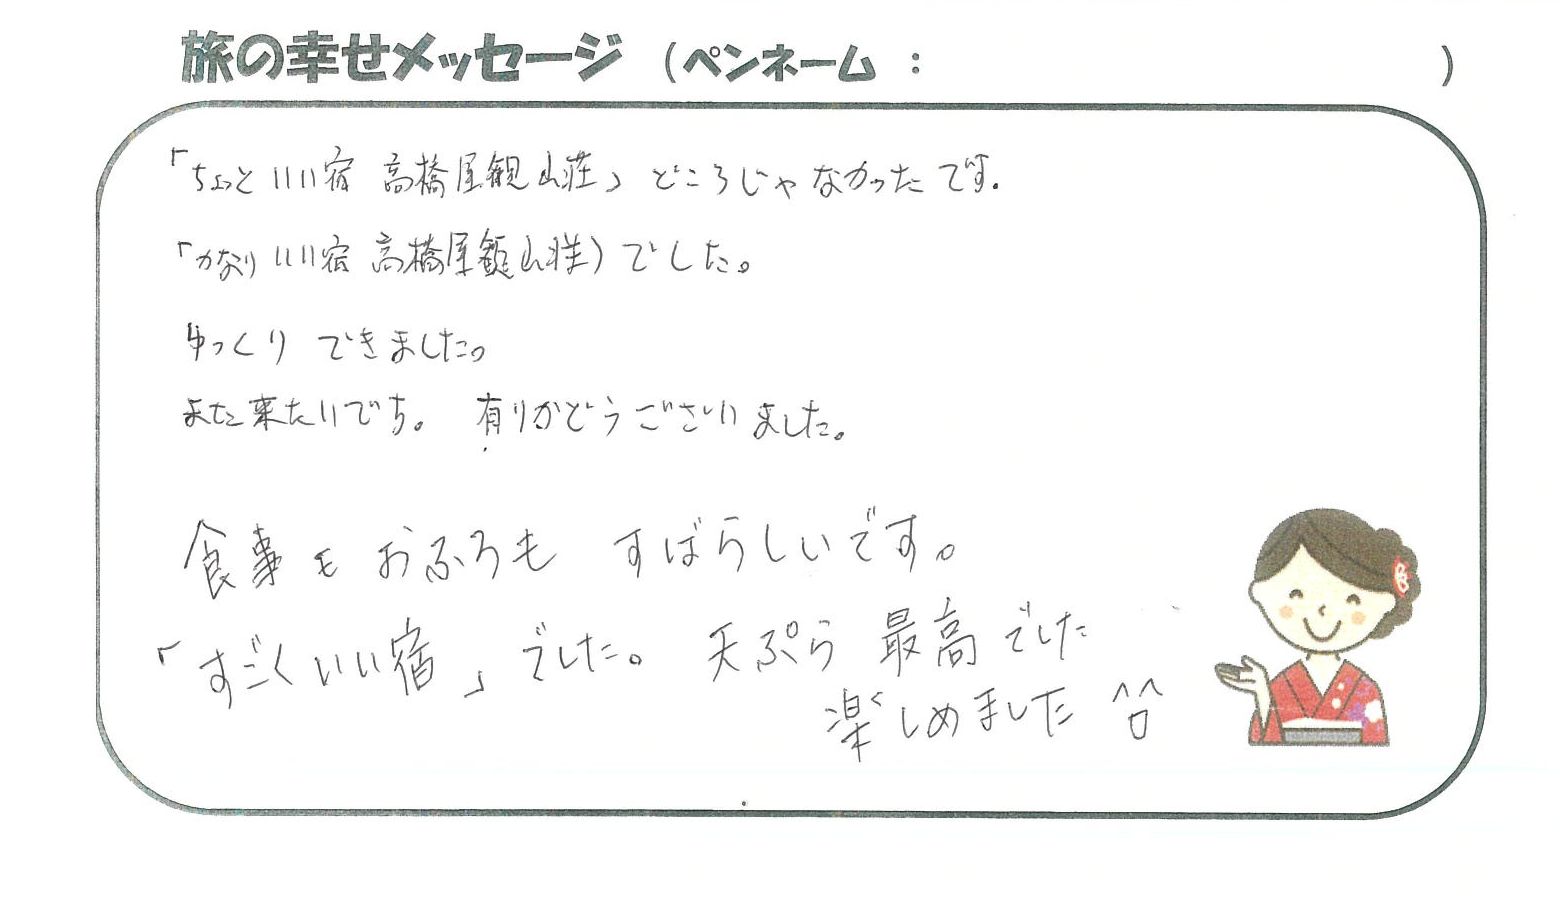 旅の幸せメッセージ (ペンネーム : )
「ちょっといい宿 高橋屋観山荘」どころじゃなかったです.
「かなりいい宿 高橋屋観山荘」でした。
ゆっくり できました。
また来たいでち。 有りがどうございました。
食事も おふろも すばらしいです。
「すごくいい宿」でした。 天ぷら 最高でした
楽しめました ^^ロ